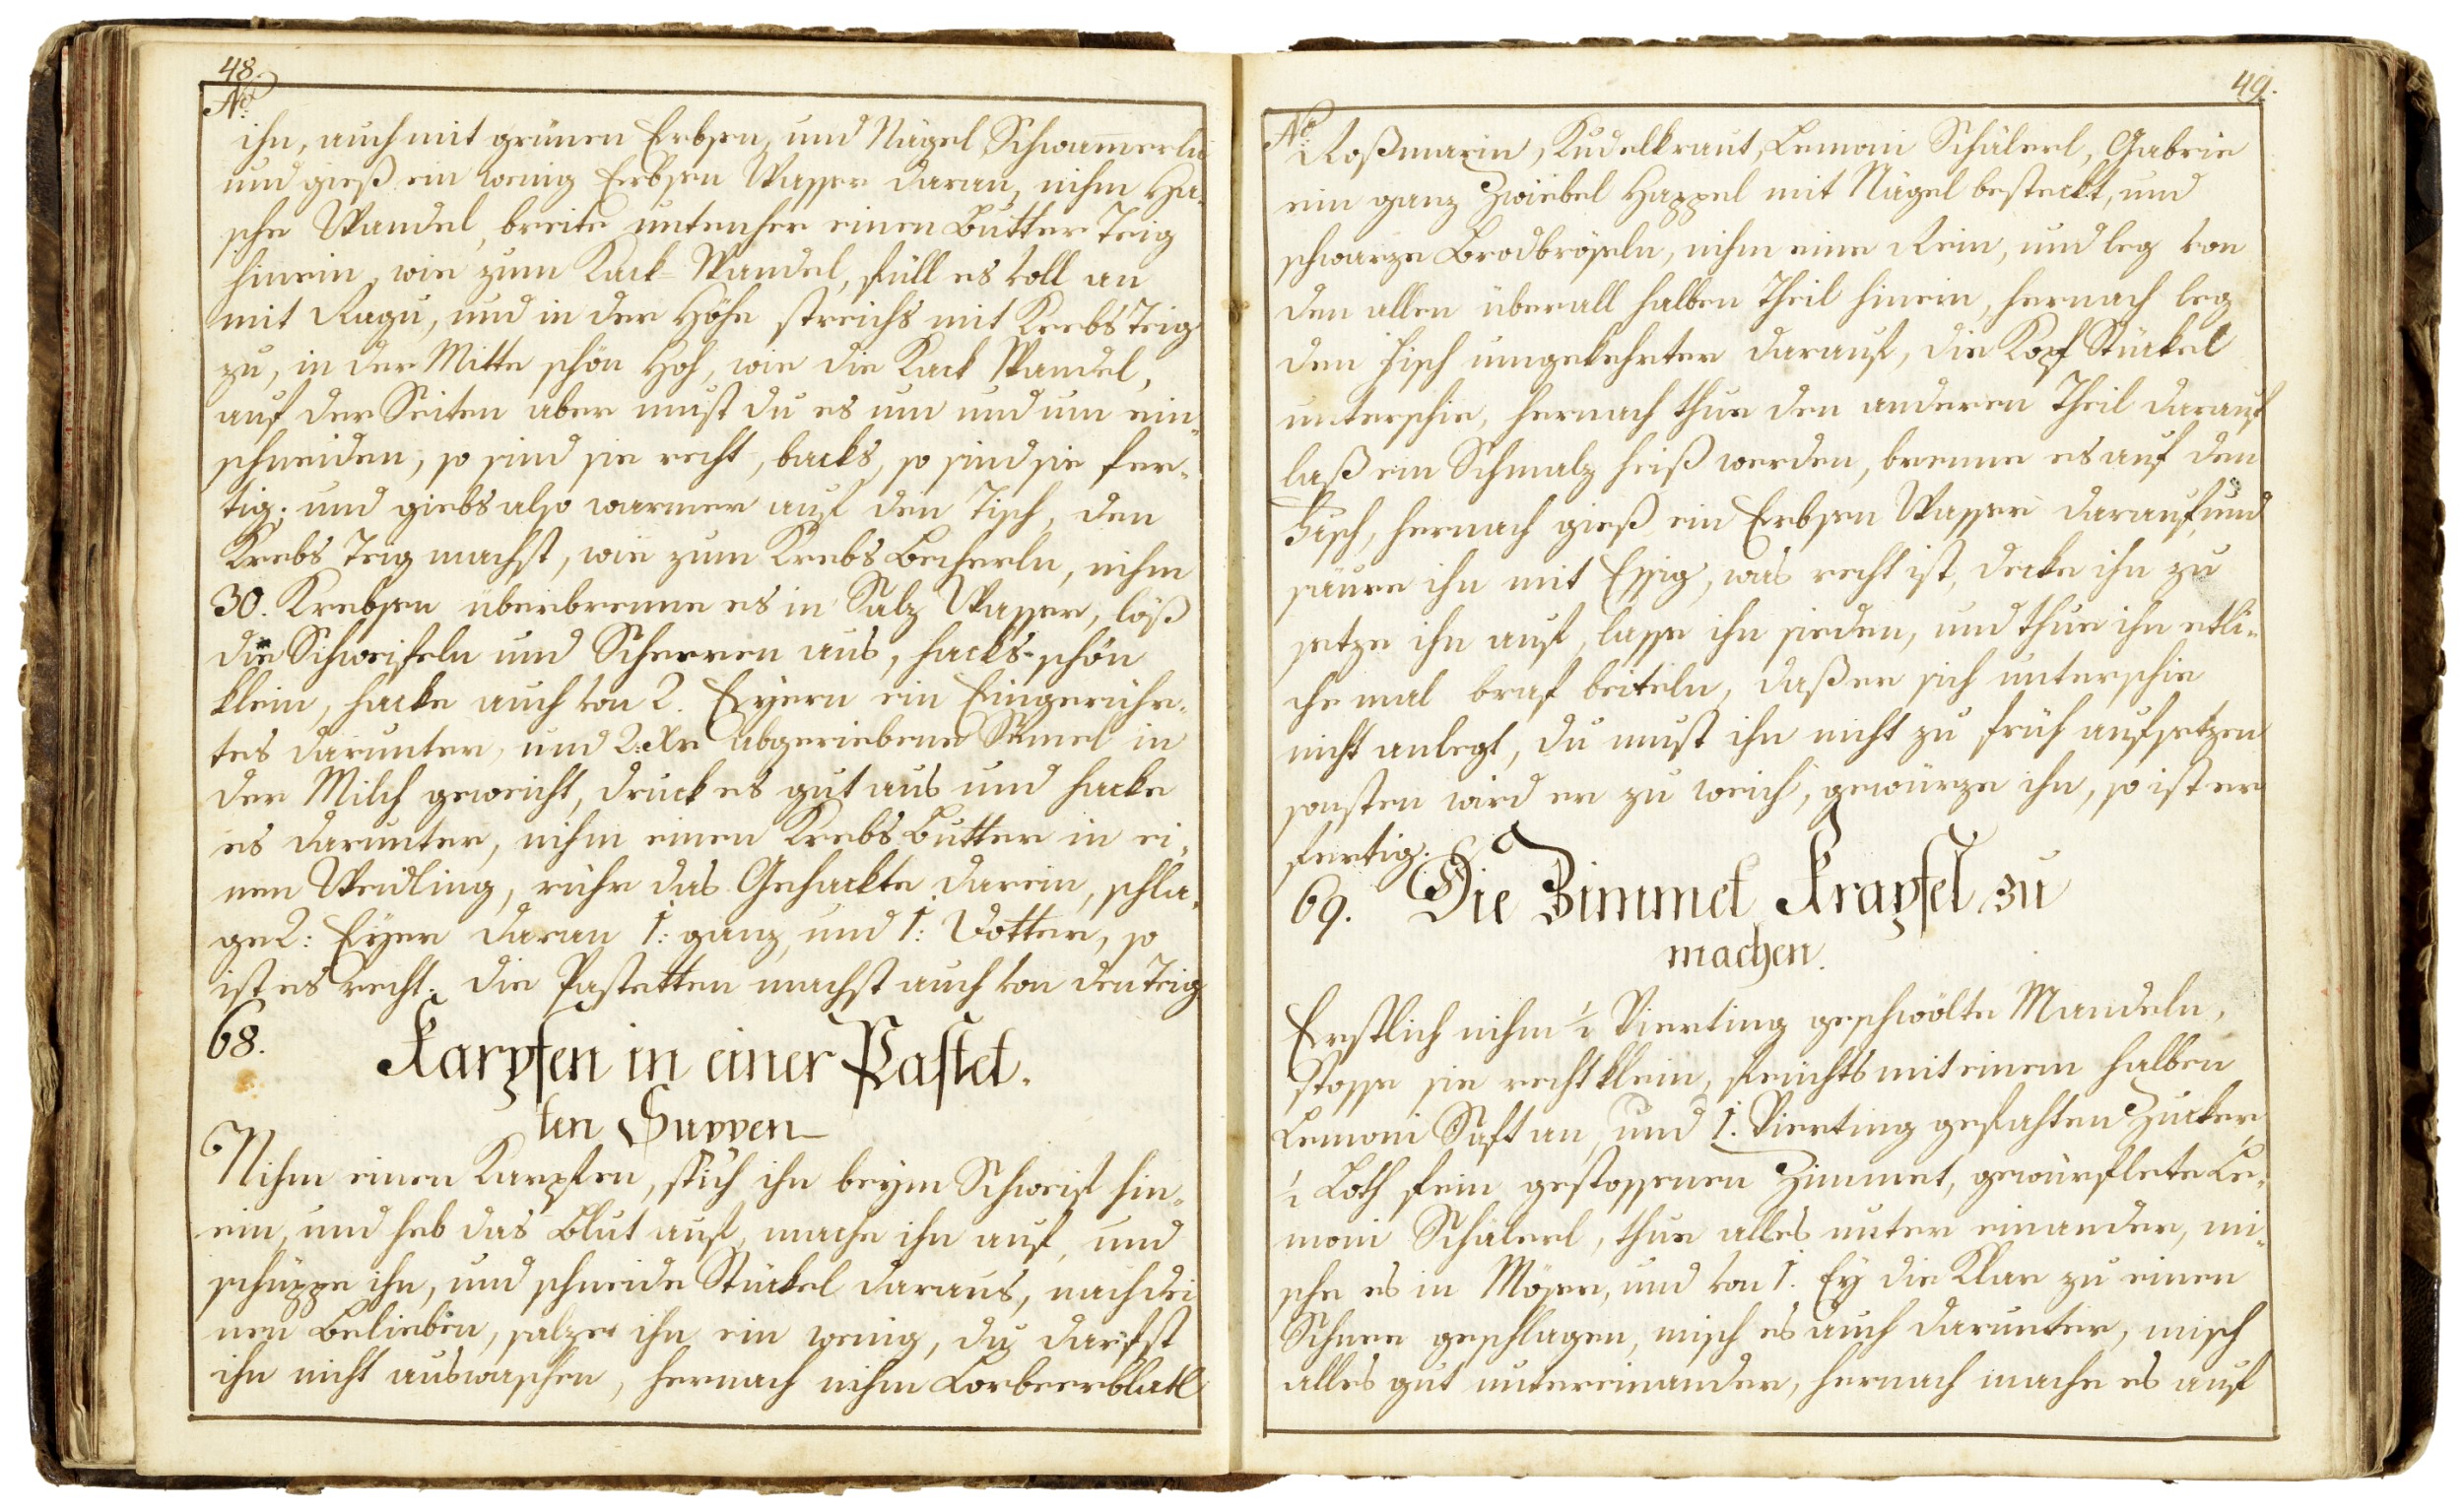 48.
No.
ihn, auch mit grünen Erbsen, und Nägel Schwam̄erln
und gieß ein wenig Erbsen Wasser daran, nihm Ha¬
sche Wandel, breite untenher einen Butter Teig
hinein, wie zum Kack-Wandel, füll es voll an
mit Ragu, und in der Höhe streichs mit Krebs Teig
zu, in der Mitte schön Hoh, wie die Kack Wandel,
auf der Seiten aber must du es um und um ein¬
schneiden, so sind sie recht, backs, so sind sie fer¬
tig; und giebs also warmer auf den Tisch, den
Krebs Teig machst, wie zum Krebs Becherln, nihm
30. Krebsen überbrenne es in Salz Wasser, löß
die Schweifeln und Scherren aus, hacks schön
klein, hacke auch von 2. Eyern ein Eingerühr¬
tes darunter, und 2: Xr abgeriebene Semel in
der Milch geweicht, druck es gut aus und hacke
es darunter, nihm einen Krebs Butter in ei¬
nen Weidling, rühr das Gehackte darein, schla¬
ge 2: Eyer daran 1: ganz, und 1: Dotter, so
ist es recht. die Pastetten machst auch von den Teig
68.
Karpfen in einer Pastet¬
ten Suppen
Nihm einen Karpfen, stich ihn beym Schweif hin¬
ein, und heb das Blut auf, mache ihn auf, und
schüppe ihn, und schneide Stückel daraus, nach dei
nen Belieben, salze ihn ein wenig, du darfst
ihn nicht auswaschen, hernach nihm Lorbeerblatl
49.
No.
Roßmarin, Kudelkraut, Lemoni Schälerl, Gabrie
ein ganz Zwiebel Happel mit Nägel besteckt, und
schwarze Brodbröseln, nihm eine Rein, und leg von
den allen überall halben Theil hinein, hernach leg
den Fisch umgekehrter darauf, die Kopf Stückel
unterschie, hernach thue den anderen Theil darauf
laß ein Schmalz heiß werden, brenne es auf den
Fisch, hernach gieß ein Erbsen Wasser darauf, und
säure ihn mit Essig, was recht ist, decke ihn zu
setze ihn auf, lasse ihn sieden, und thue ihn etli¬
che mal braf beiteln, daß er sich unterschie
nicht anlegt, du must ihn nicht zu früh aufsetzen
sonsten wird er zu weich, gewürze ihn, so ist er
fertig.
69. Die Zimmet Krapfel zu
machen.
Erstlich nihm ½ Vierting geschwölte Mandeln,
stosse sie recht klein, feuchts mit einem halben
Lemoni Saft an, und 1. Vierting gefahten Zucker,
½ Loth fein gestossenen Zimmet, gewürflete Le¬
moni Schälerl, thue alles unter einander, mi¬
sche es in Möser, und von 1. Ey die Klar zu einen
Schnee geschlagen, misch es auch darunter, misch
alles gut untereinander, hernach mache es auf